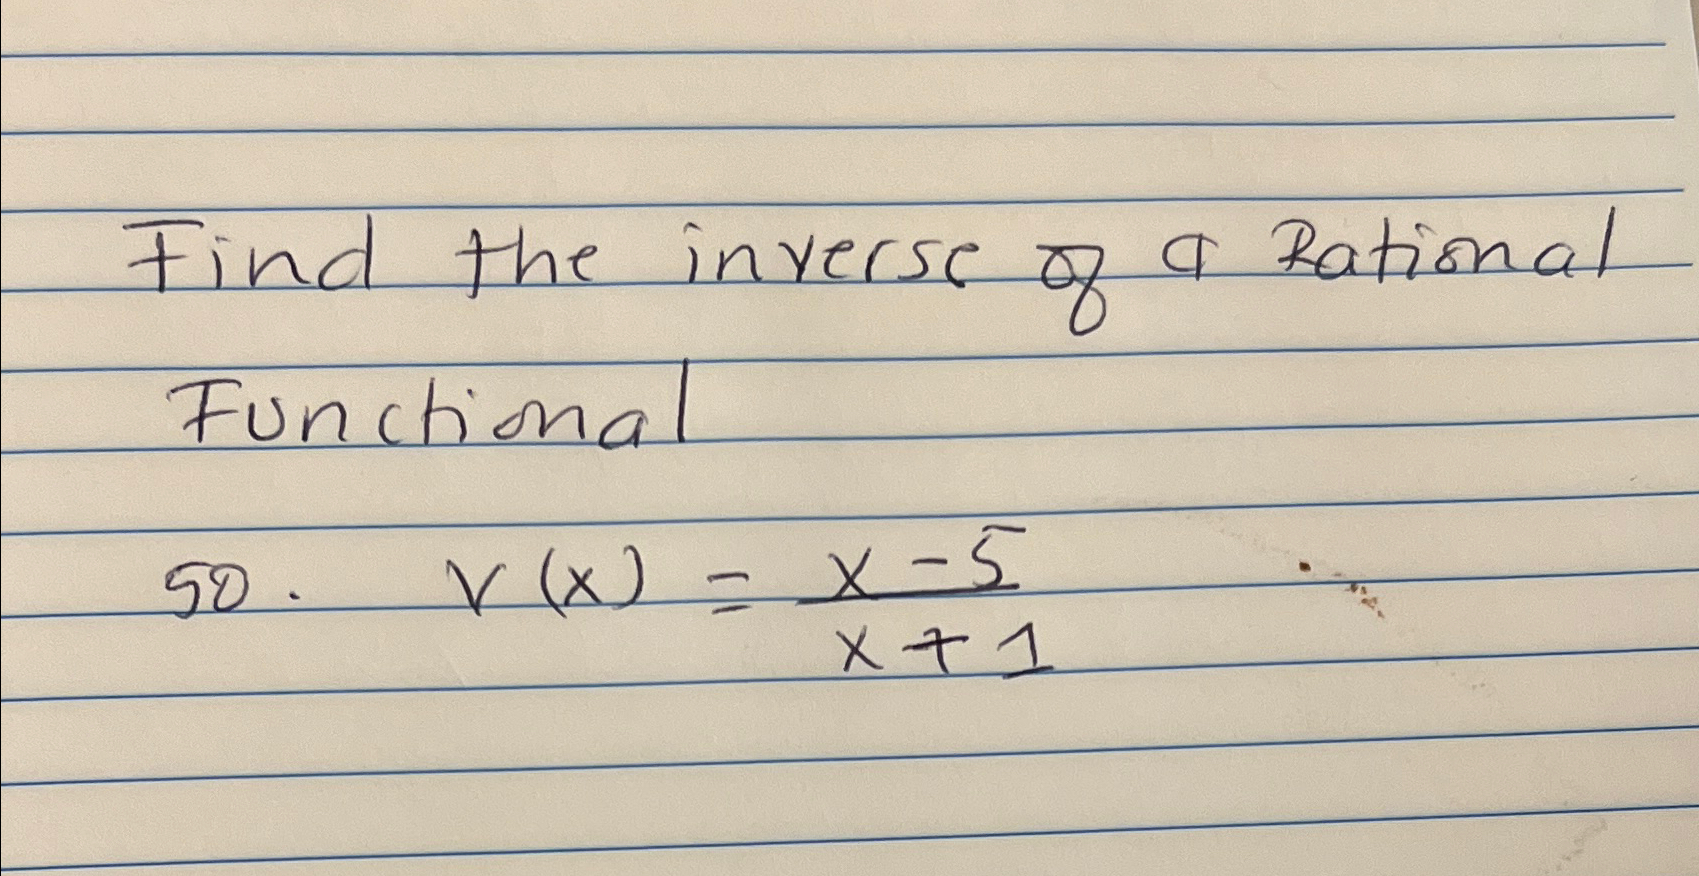 Find the inverse of a Rational
Functional
50. V(x) = x-5
x+1